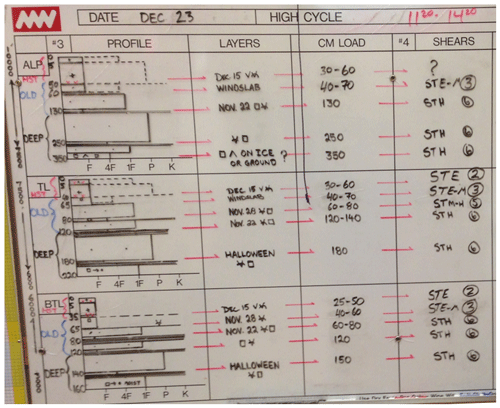 DATE DEC 23 HIGH CYCLE 11²⁰ - 14²⁰
#3 PROFILE LAYERS CM LOAD #4 SHEARS
ALP
HST
OLD
DEEP
130
250
350
F 4F 1F P K
DEC 15 V 30-60 ?
WINDSLAB 40-70 STE-M 3
NOV. 22 130 STH 6
250 STH 6
ON ICE OR GROUND? 350 STH 6
TL
HST
OLD
DEEP
F 4F 1F P K
DEC 15 V 30-60 STE 2
WINDSLAB 40-70 STE-M 3
NOV. 28 60-80 STM-H 5
NOV. 22 120-140 STH 6
HALLOWEEN 180 STH 6
BTL
HST
OLD
DEEP
80
120
140
160
F 4F 1F P K
DEC 15 V 25-50 STE 2
40-60 STE-M 2
NOV. 28 60-80 STH 6
NOV. 22
120 STH 6
HALLOWEEN 150 STH 6